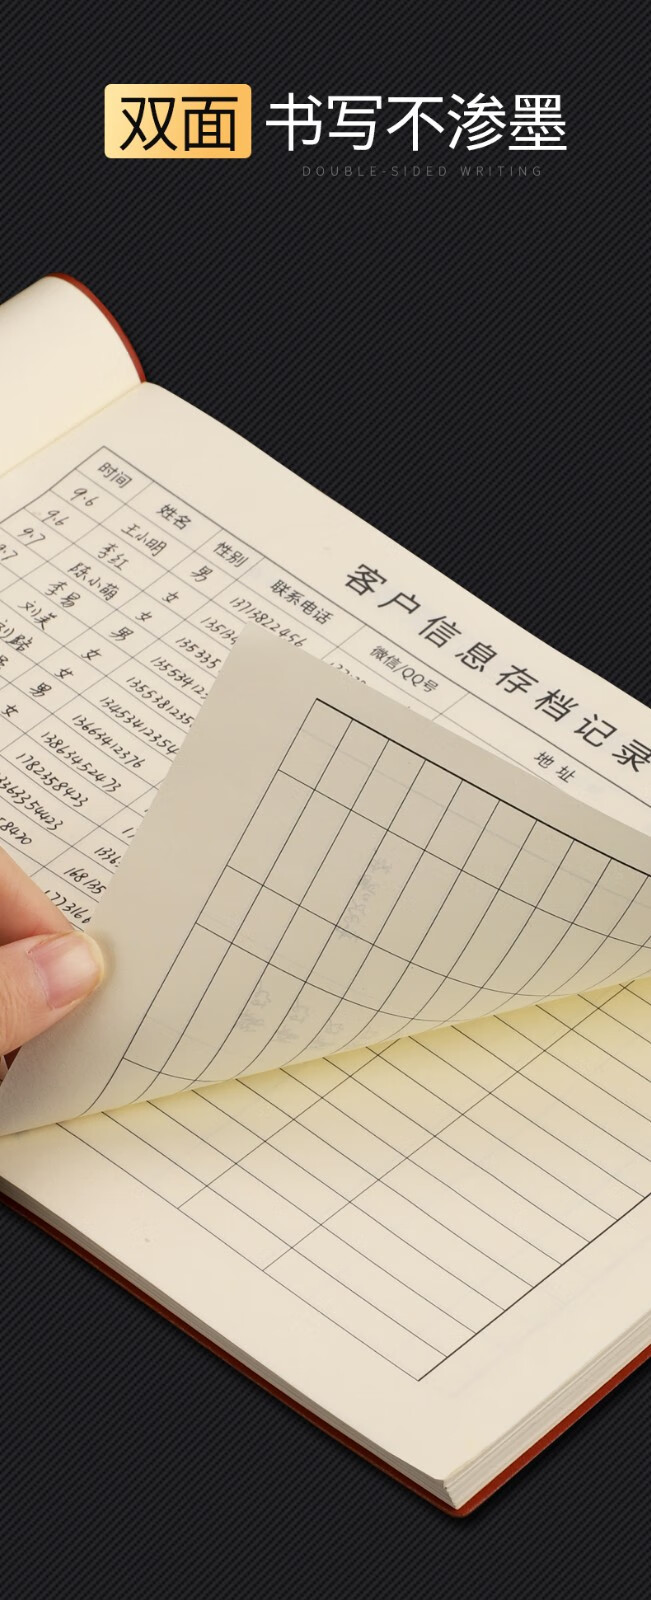 双面 书写不渗墨
DOUBLE-SIDED WRITING
客户信息存档记录
时间 姓名 性别 联系电话 微信/QQ号 地址
9.6 王小明 男 13713822456
9.6 李红 女 13513
9.7 陈小萌 女 135335
9.7 李易 男 13553412
刘美 女 1355381235
女 13453412354
男 13663412376
女 13863452473
1782358423
13363354423
58420
168135
177316